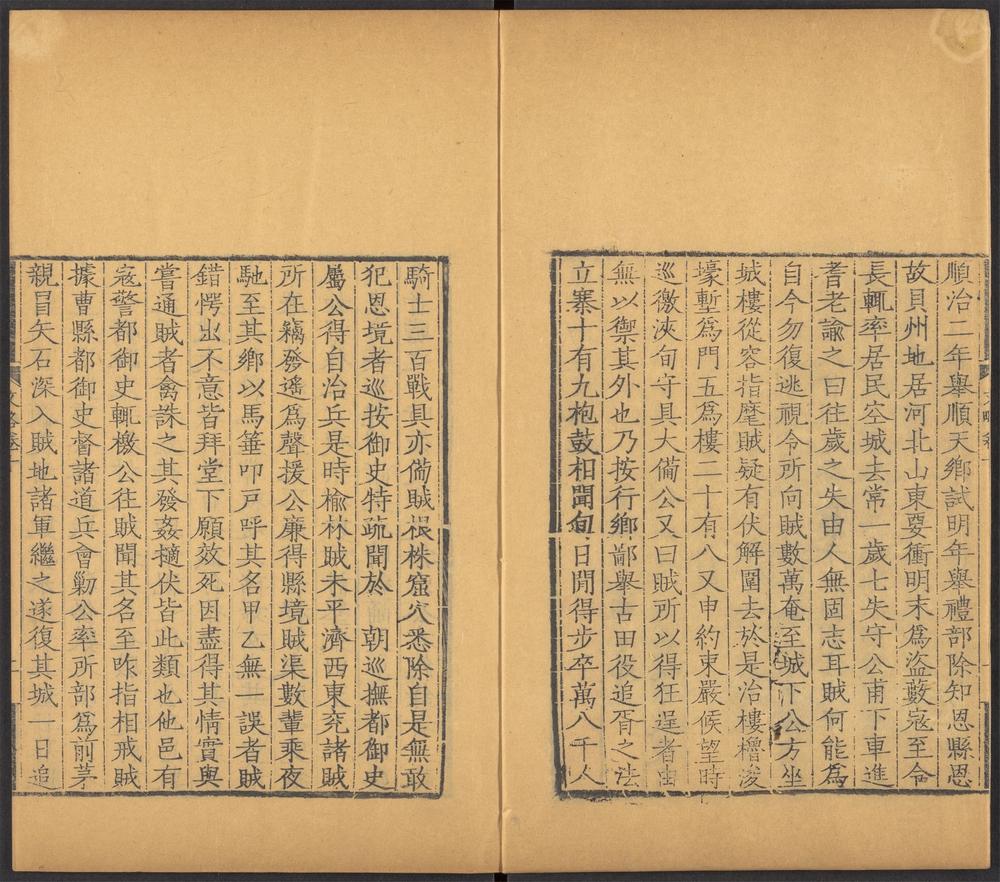 順治二年舉順天鄉試明年舉禮部除知恩縣恩
故貝州地居河北山東要衝明末為盜藪寇至令
長輒率居民空城去常一歲七失守公甫下車進
耆老諭之曰往歲之失由人無固志耳賊何能為
自今勿復逃視令所向賊數萬奄至城下公方坐
城樓從容指麾賊疑有伏解圍去於是治樓櫓浚
壕塹為門五為樓二十有八又申約束嚴候望時
巡徼浹旬守具大備公又曰賊所以得狂逞者由
無以禦其外也乃按行鄉鄙舉古田役追胥之法
立寨十有九枹鼓相聞旬日閒得步卒萬八千人
騎士三百戰具亦備賊根株窟穴悉除自是無敢
犯恩境者巡按御史特疏聞於　朝巡撫都御史
屬公得自治兵是時榆林賊未平濟西東兗諸賊
所在竊發遙為聲援公廉得縣境賊渠數輩乘夜
馳至其鄉以馬箠叩戸呼其名甲乙無一誤者賊
錯愕出不意皆拜堂下願效死因盡得其情實與
嘗通賊者禽誅之其發姦擿伏皆此類也他邑有
寇警都御史輒檄公往賊聞其名至咋指相戒賊
據曹縣都御史督諸道兵會勦公率所部為前茅
親冒矢石深入賊地諸軍繼之遂復其城一日追